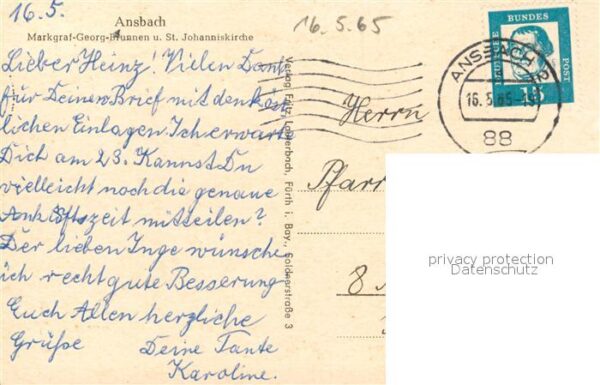 16.5.
Ansbach
Markgraf-Georg-Brunnen u. St. Johanniskirche
Lieber Heinz! Vielen Dank
für Deinen Brief mit den köst
lichen Einlagen. Ich erwarte
Dich am 23. Kannst Du
vielleicht noch die genaue
Ankunftszeit mitteilen?
Der lieben Inge wünsche
ich recht gute Besserung
Euch Allen herzliche
Grüße Deine Tante
Karoline.
Verlag Fritz Lauterbach, Fürth i. Bay., Goldnerstraße 3
16.5.65
DEUTSCHE BUNDESPOST
15
16.5.65
88
Herrn
Pfarr
8
privacy protection
Datenschutz